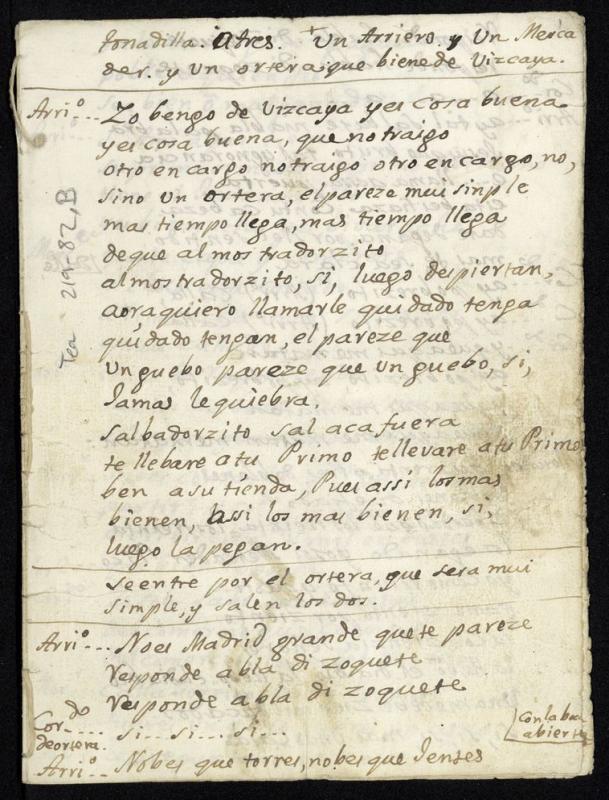 tonadilla. Atres. Un Arriero y Un Merca
der. y Un ortera que bienede Vizcaya.
Arri.º... Zo bengo de Vizcaya yes cosa buena
yes cosa buena, que notraigo
otro encargo notraigo otro encargo, no,
sino un ortera, el pareze mui sinple
mas tiempo llega, mas tiempo llega
deque almostradorzito
almostradorzito, si, luego despiertan,
aora quiero llamarle quidado tenga
quidado tengan, el pareze que
Unguebo pareze que un guebo, si,
Jamas lequiebra.
Salbadorzito sal aca fuera
te llebare atu Primo tellevare atu Primo
ben a su tienda, Pues assi los mas
bienen, assi los mas bienen, si,
luego la pegan.
Seentre por el ortera, que sera mui
simple, y salen los dos.
Arri.º... Noes Madrid grande quete pareze
Responde abla di zoquete
Responde abla di zoquete
Cor.do....
deortera. si... si... si... Con la boca
abierta
Arri.º... Nobes que torres, nobes que Jentes
Tea 219-82, B